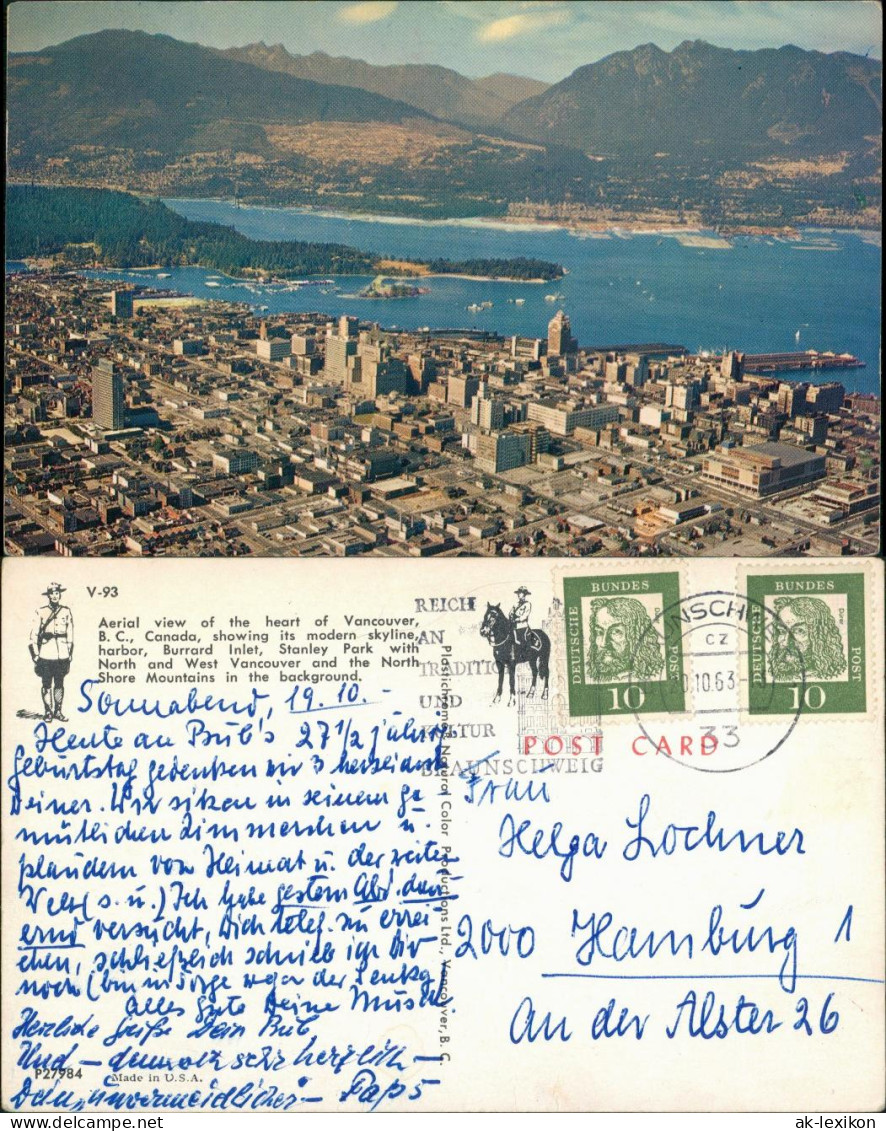 V-93
Aerial view of the heart of Vancouver,
B. C., Canada, showing its modern skyline,
harbor, Burrard Inlet, Stanley Park with
North and West Vancouver and the North
Shore Mountains in the background.
Sonnabend, 19.10.-
Heute an Bub's 27 1/2 jähr.
Geburtstag gedenken wir 3
Deiner. Wir sitzen in seinem ge-
mütlichen Zimmerchen u.
plaudern von Heimat u. der weiten
Welt (s. u.) Ich habe gestern Abd. dau-
ernd versucht, Dich telef. zu errei-
chen, schließlich schrieb ich Dir
noch (bin in Sorge wegen der
Alles Gute Deine
Herzliche Grüße Dein Bub
Und - dennoch sehr herzlich -
Dein "unvermeidlicher" - Paps
P27984
Made in U.S.A.
Plastichrome Natural Color Productions Ltd., Vancouver, B. C.
REICH
AN
TRADITION
UND
KULTUR
BRAUNSCHWEIG
DEUTSCHE BUNDES POST
10
DEUTSCHE BUNDES POST
Dürer
10
BRAUNSCHWEIG
cz
20.10.63
33
POST CARD
Frau
Helga Lochner
2000 Hamburg 1
An der Alster 26
ak-lexikon